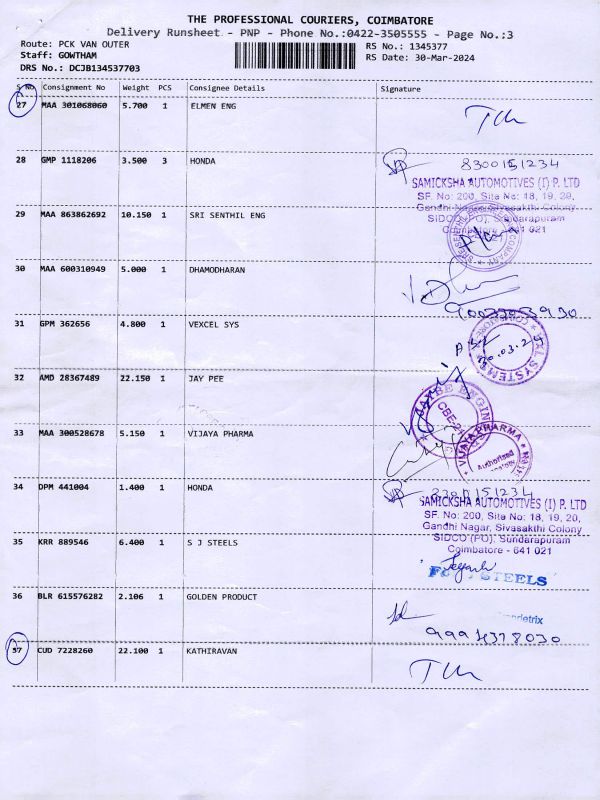 THE PROFESSIONAL COURIERS, COIMBATORE
Delivery Runsheet - PNP - Phone No.:0422-3505555 - Page No.:3
Route: PCK VAN OUTER
RS No.: 1345377
Staff: GOWTHAM
RS Date: 30-Mar-2024
DRS No.: DCJB134537703
S No Consignment No Weight PCS Consignee Details Signature
27 MAA 301068060 5.700 1 ELMEN ENG
28 GMP 1118206 3.500 3 HONDA 8300151234
SAMICKSHA AUTOMOTIVES (I) P. LTD
SF. No: 200, Site No: 18, 19, 20,
Gandhi Nagar, Sivasakthi Colony
SIDCO (PO), Sundarapuram
Coimbatore - 641 021
29 MAA 863862692 10.150 1 SRI SENTHIL ENG
30 MAA 600310949 5.000 1 DHAMODHARAN
31 GPM 362656 4.800 1 VEXCEL SYS
32 AMD 28367489 22.150 1 JAY PEE
33 MAA 300528678 5.150 1 VIJAYA PHARMA
VIJAYA PHARMA
Authorised
34 DPM 441004 1.400 1 HONDA 8300151234
SAMICKSHA AUTOMOTIVES (I) P. LTD
SF. No: 200, Site No: 18, 19, 20,
Gandhi Nagar, Sivasakthi Colony
SIDCO (PO), Sundarapuram
Coimbatore - 641 021
35 KRR 889546 6.400 1 S J STEELS
STEELS
36 BLR 615576282 2.106 1 GOLDEN PRODUCT
37 CUD 7228260 22.100 1 KATHIRAVAN